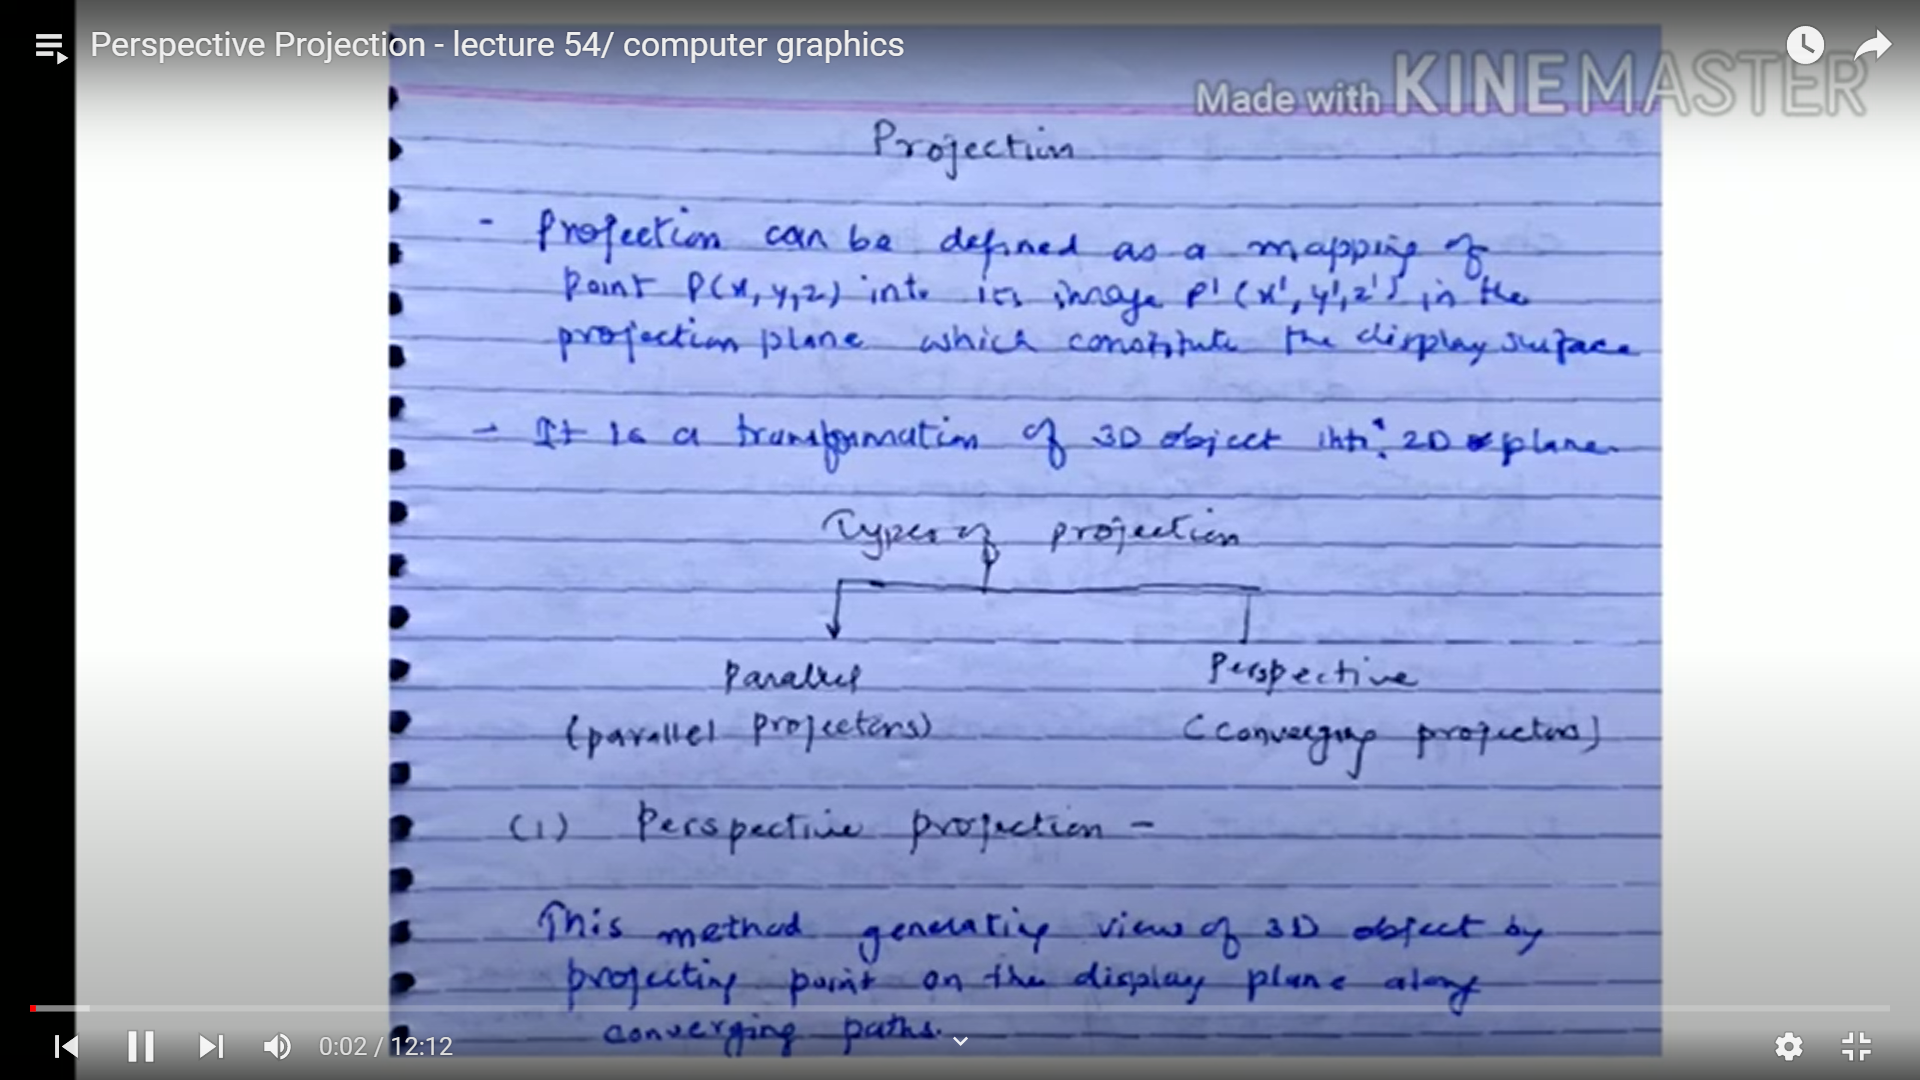 Perspective Projection - lecture 54/ computer graphics
Made with KINEMASTER
Projection
- Projection can be defined as a mapping of
point P(x,y,z) into its image P'(x',y',z') in the
projection plane which constitute the display surface
- It is a transformation of 3D object into 2D plane.
Types of projection
Parallel
Perspective
(parallel projectors)
(converging projectors)
(1) Perspective projection -
This method generating view of 3D object by
projecting point on the display plane along
converging paths.
0:02 / 12:12